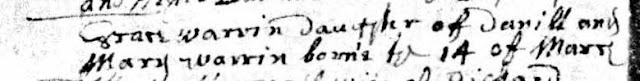 Grace warrin daughter of Daniell and
Mary warrin borne ye 14 of March